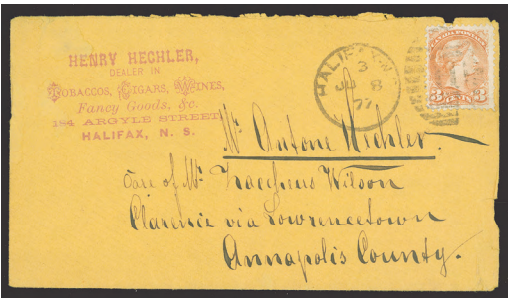 HENRY HECHLER,
DEALER IN
Tobaccos, Cigars, Wines,
Fancy Goods, &c.
184 ARGYLE STREET,
HALIFAX, N. S.
HALIFAX
3
JU 8
77
CANADA POSTAGE
3 CENTS 3
Mr Antone Hechler.
Care of Mr Zaccheus Wilson
Clarence via Lowrencetown
Annapolis County.